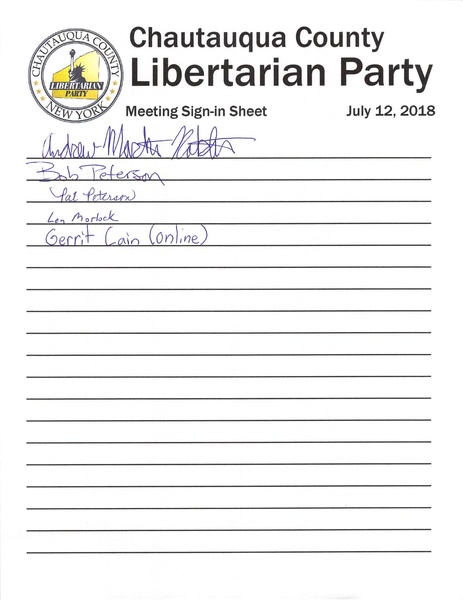 CHAUTAUQUA COUNTY
LIBERTARIAN
PARTY
NEW YORK
Chautauqua County
Libertarian Party
Meeting Sign-in Sheet July 12, 2018
Andrew Martin
Bob Peterson
Pat Peterson
Len Morlock
Gerrit Cain (online)